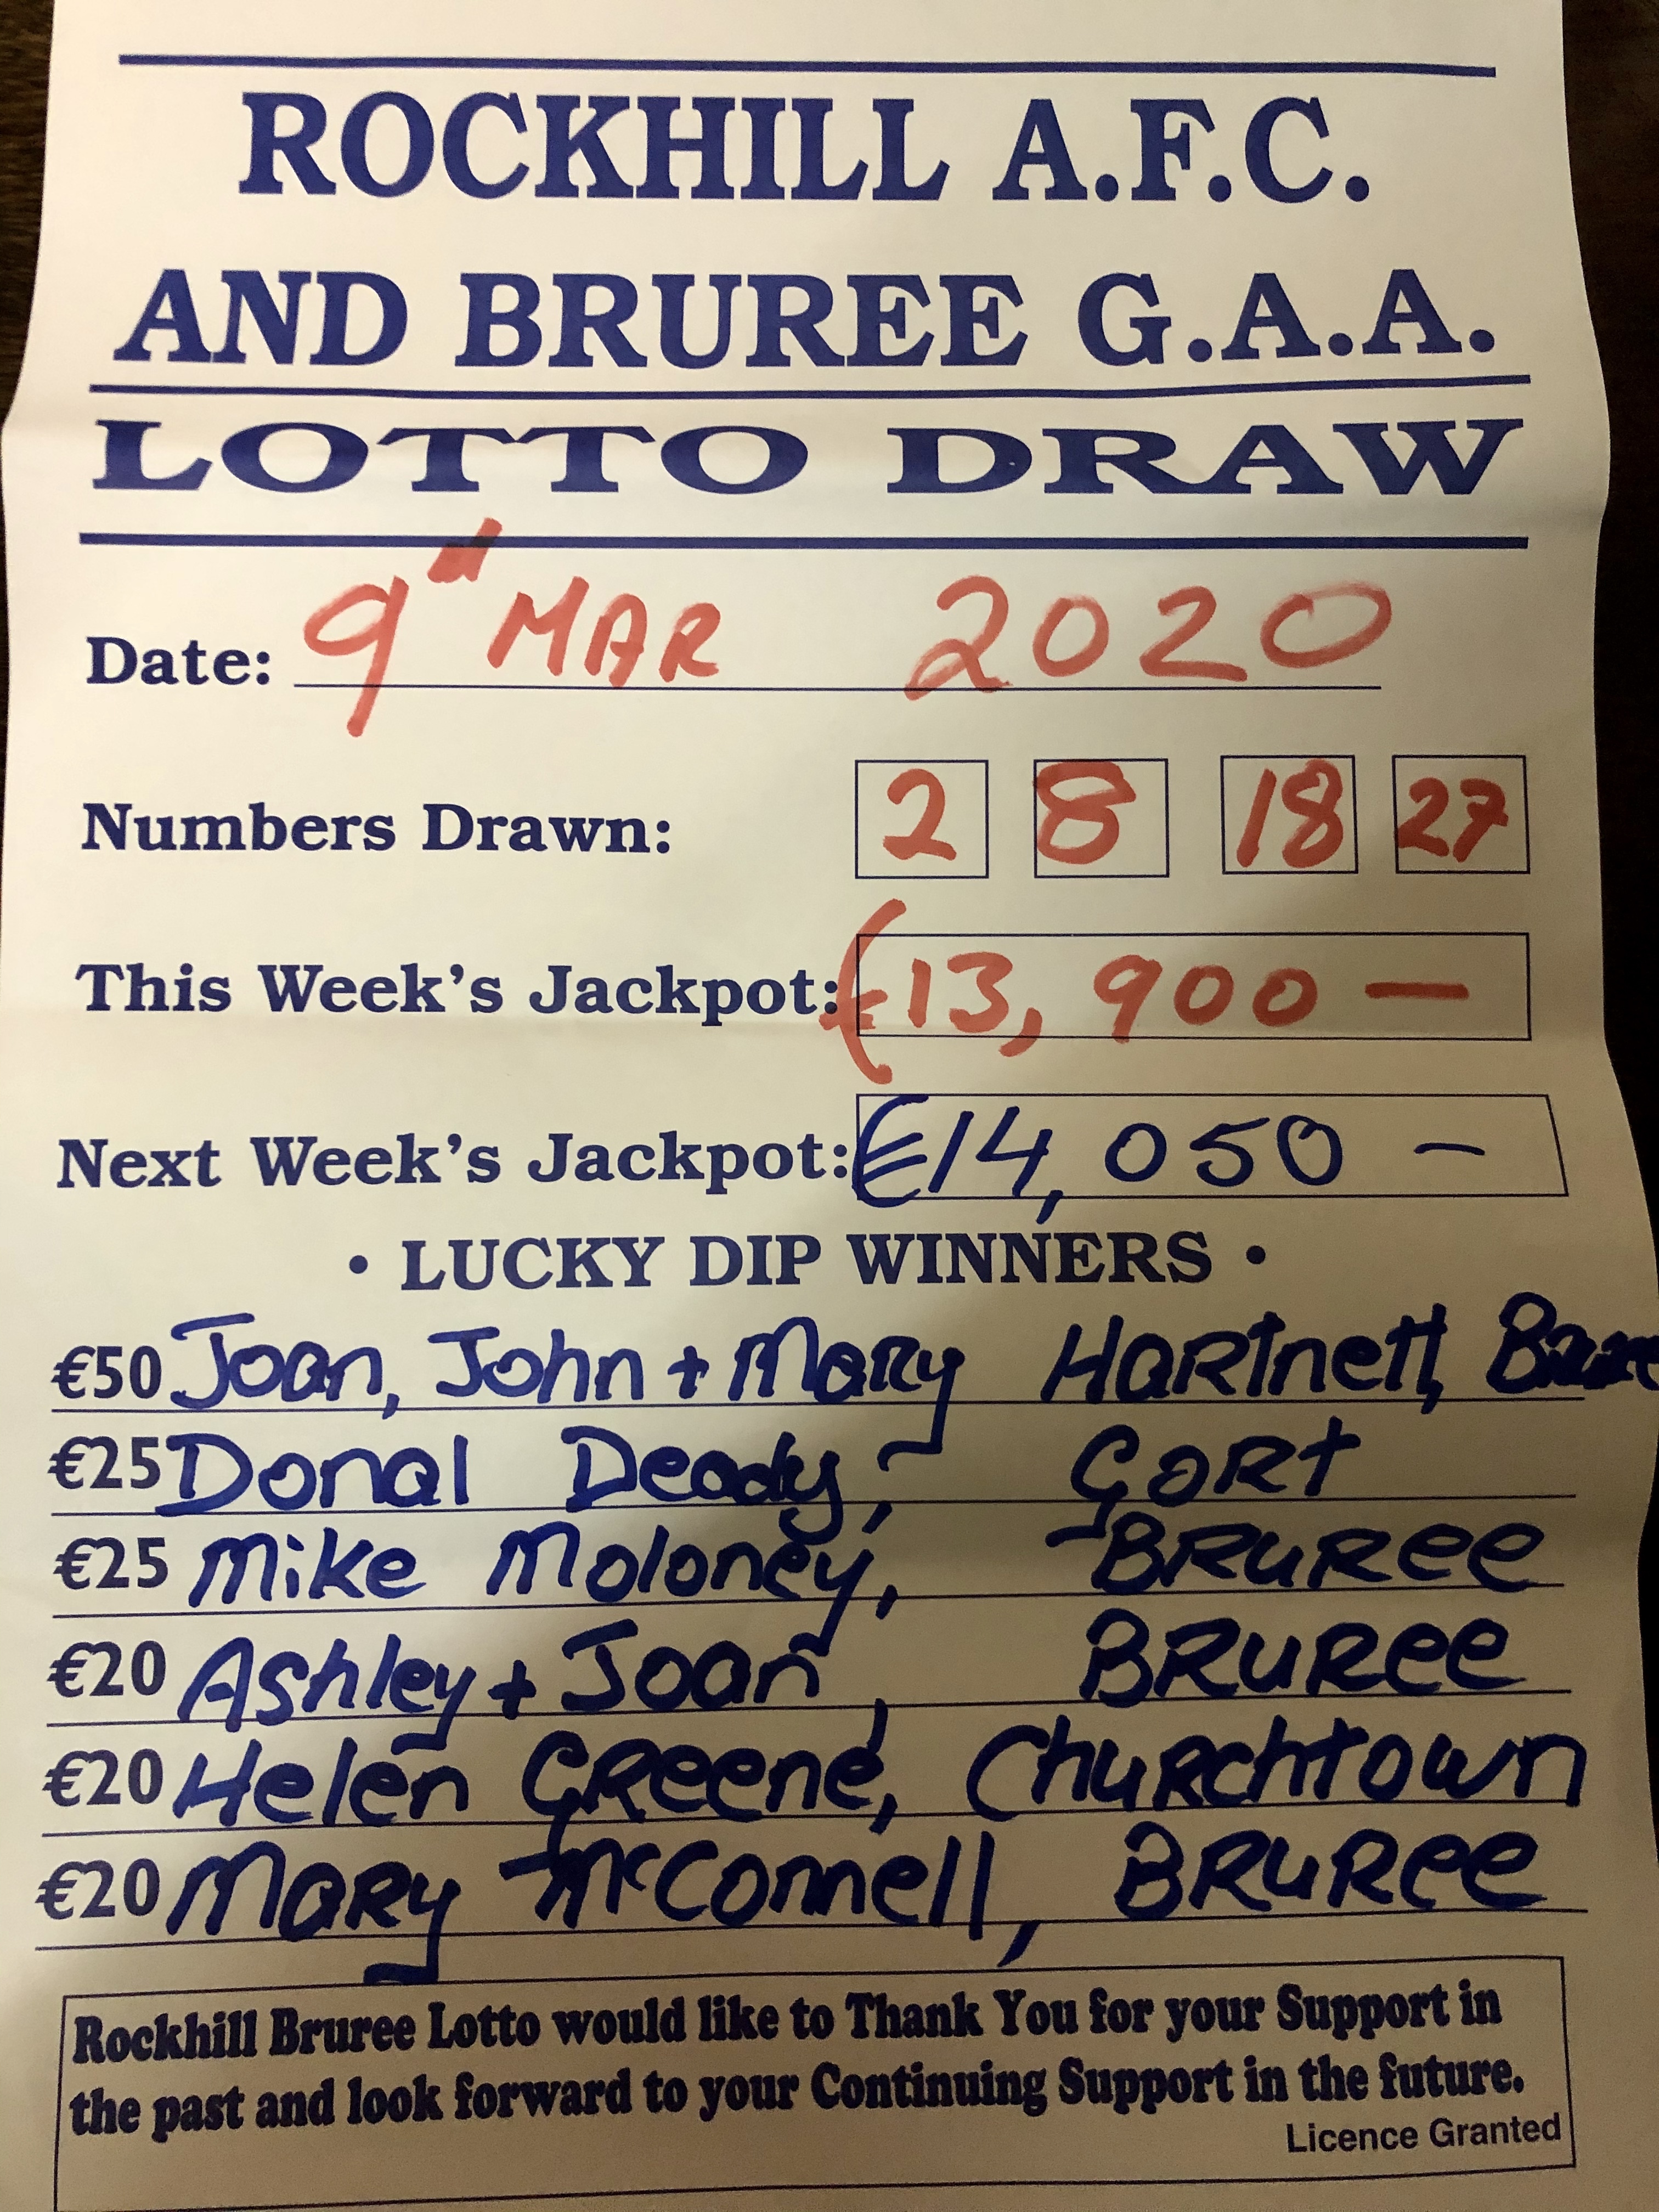 ROCKHILL A.F.C.
AND BRUREE G.A.A.
LOTTO DRAW
Date: 9th MAR 2020
Numbers Drawn: 2 8 18 27
This Week's Jackpot: €13,900 —
Next Week's Jackpot: €14,050 –
• LUCKY DIP WINNERS •
€50 Joan, John + Mary Hartnett,
€25 Donal Deady, Gort
€25 Mike Moloney, Bruree
€20 Ashley + Joan, Bruree
€20 Helen Greene, Churchtown
€20 Mary McConnell, Bruree
Rockhill Bruree Lotto would like to Thank You for your Support in
the past and look forward to your Continuing Support in the future.
Licence Granted